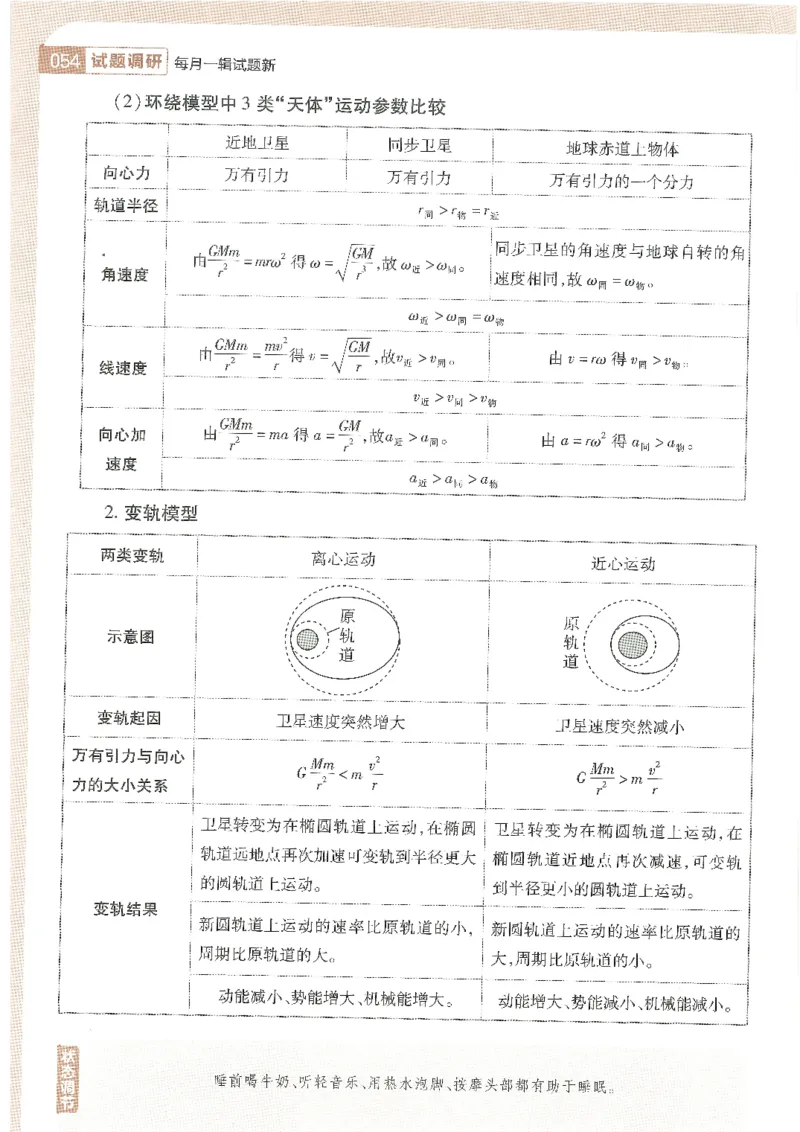 054 试题调研 每月一辑试题新
(2)环绕模型中3类“天体”运动参数比较
近地卫星 同步卫星 地球赤道上物体
向心力 万有引力 万有引力 万有引力的一个分力
轨道半径 r同>r物=r近
角速度 由GMm/r²=mrω²得ω=√(GM/r³),故ω近>ω同。 同步卫星的角速度与地球自转的角
速度相同,故ω同=ω物。
ω近>ω同=ω物
线速度 由GMm/r²=mv²/r得v=√(GM/r),故v近>v同。 由v=rω得v同>v物。
v近>v同>v物
向心加
速度 由GMm/r²=ma得a=GM/r²,故a近>a同。 由a=rω²得a同>a物。
a近>a同>a物
2.变轨模型
两类变轨 离心运动 近心运动
示意图 原
轨
道 原
轨
道
变轨起因 卫星速度突然增大 卫星速度突然减小
万有引力与向心
力的大小关系 G Mm/r²<m v²/r G Mm/r²>m v²/r
变轨结果
卫星转变为在椭圆轨道上运动,在椭圆
轨道远地点再次加速可变轨到半径更大
的圆轨道上运动。
卫星转变为在椭圆轨道上运动,在
椭圆轨道近地点再次减速,可变轨
到半径更小的圆轨道上运动。
新圆轨道上运动的速率比原轨道的小,
周期比原轨道的大。
新圆轨道上运动的速率比原轨道的
大,周期比原轨道的小。
动能减小、势能增大、机械能增大。 动能增大、势能减小、机械能减小。
状态调节
睡前喝牛奶、听轻音乐、用热水泡脚、按摩头部都有助于睡眠。